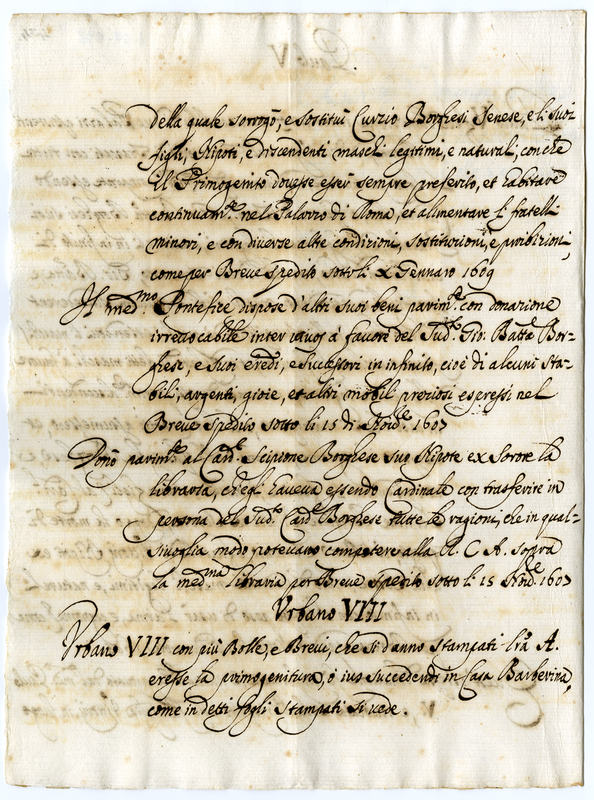 della quale sorrogò, e sostituì Curzio Borghesi Senese, e li suoi
figli, Nipoti, e discendenti maschi legitimi, e naturali, con che
il Primogenito douesse esser sempre preferito, et habitare
continuam.te nel Palazzo di Roma, et alimentare li fratelli
minori, e con diuerse altre condizioni, sostituzioni, e proibizioni,
come per Breue spedito sotto li X Gennaro 1609
Il med.mo Pontefice dispose d'altri suoi beni parim.te con donazione
irreuocabile inter viuos à fauore del Sud.o Gio. Batta Bor-
ghese, e suoi eredi, e successori in infinito, cioè di alcuni sta-
bili, argenti, gioie, et altri mobili preziosi espressi nel
Breue spedito sotto li 15 di Nou.re 1607
Donò parim.te al Card.e Scipione Borghese suo Nipote ex Sorore la
libraria, ch'egli haueua essendo Cardinale con trasferire in
persona del Sud.o Card.e Borghese tutte le ragioni, che in qual-
siuoglia modo poteuano competere alla R. C. A. sopra
la med.ma libraria per Breue spedito sotto li 15 Nou.re 1607
Urbano VIII
Urbano VIII con più Bolle, e Breui, che si danno stampati lr̃a A.
eresse la primogenitura, ò ius succedendi in Casa Barberina,
come in detti fogli stampati si uede.